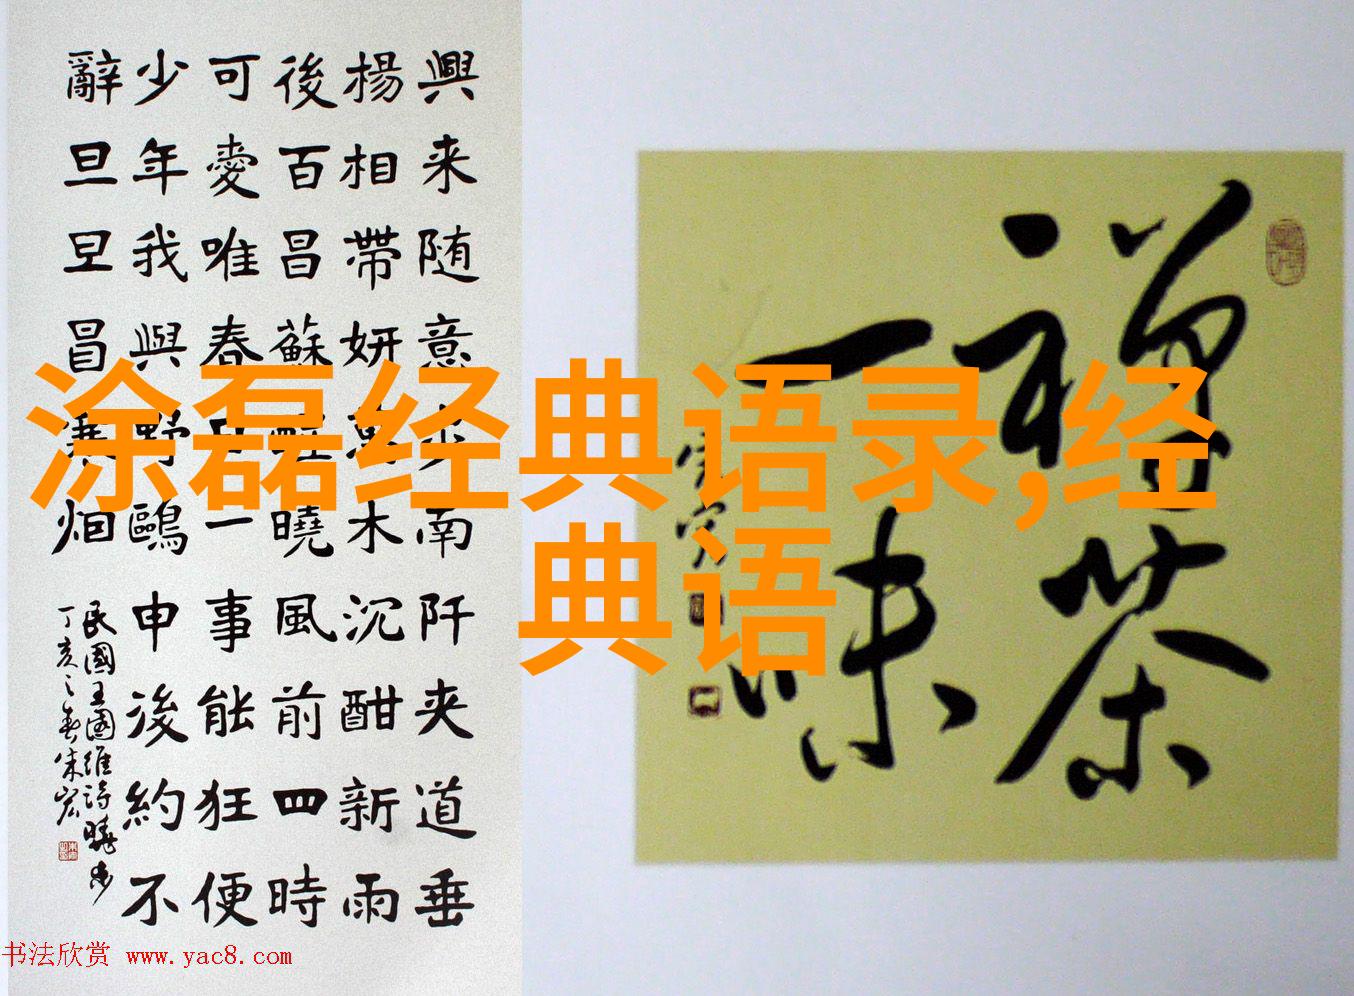 興来随意步南阡夹道垂
楊相帶妍萬木沉酣新雨
後百昌蘇醒曉風前四時
可愛唯春日一事能狂便
少年我與野鷗申後約不
辭旦旦冒寒烟
民國王國維詩曉步
丁亥之春朱宏
禪茶
一味
涂磊经典语录,经
典语
书法欣赏 www.yac8.com